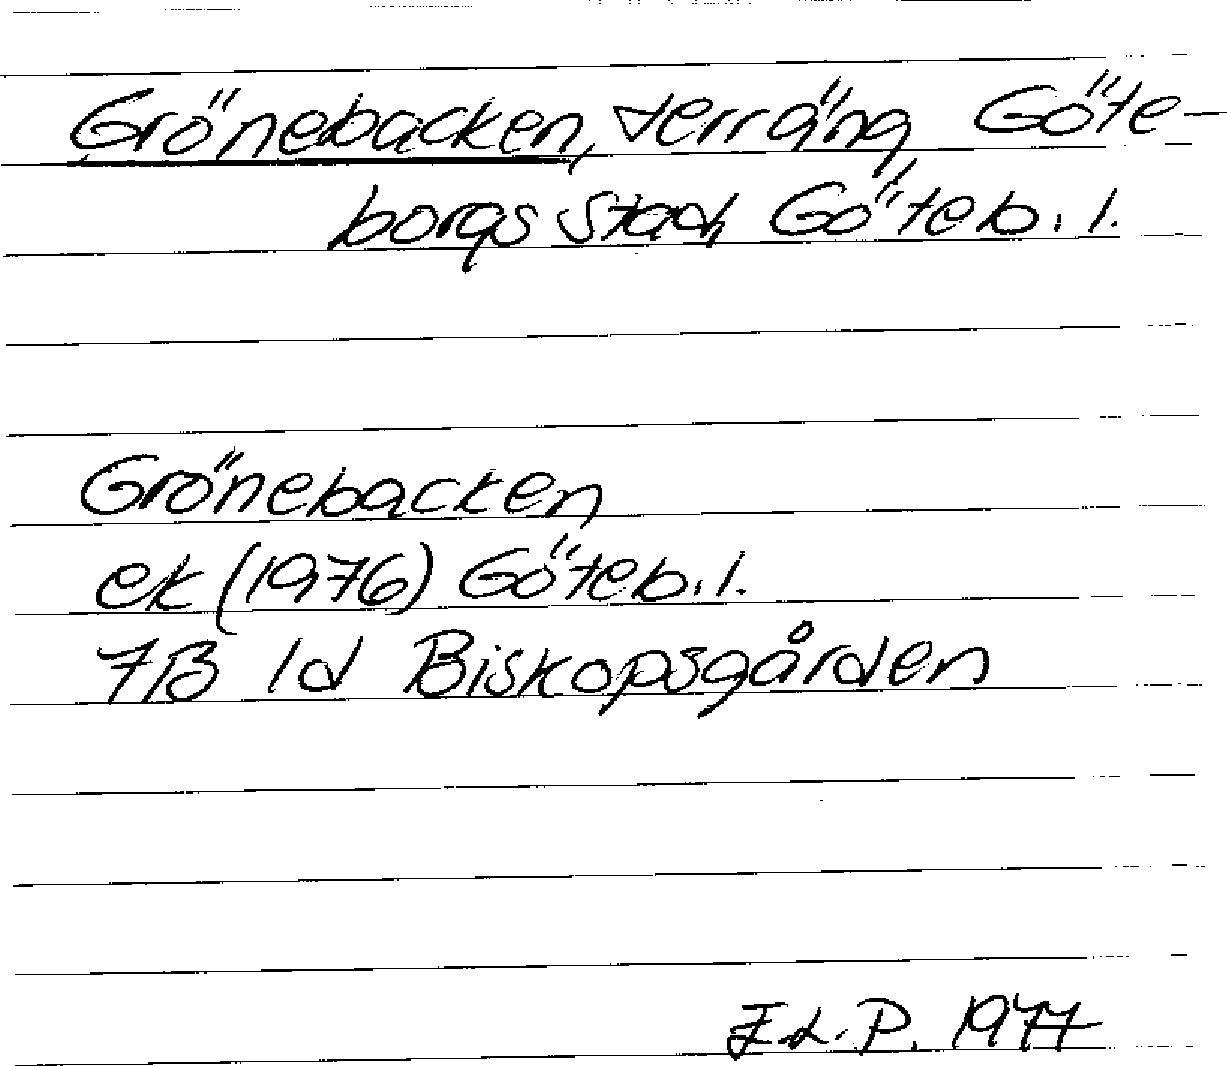 Grönebacken, terräng, Göte-
borgs stad, Göteb. l.
Grönebacken
ek (1976) Göteb. l.
7B 1d Biskopsgården
E.L.P. 1977